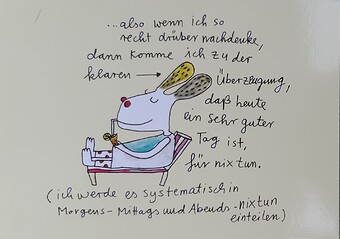 ...also wenn ich so
recht drüber nachdenke,
dann komme ich zu der
klaren → Überzeugung,
daß heute
ein sehr guter
Tag ist,
für nix tun.
(ich werde es systematisch in
Morgens- Mittags und Abends -nixtun
einteilen)